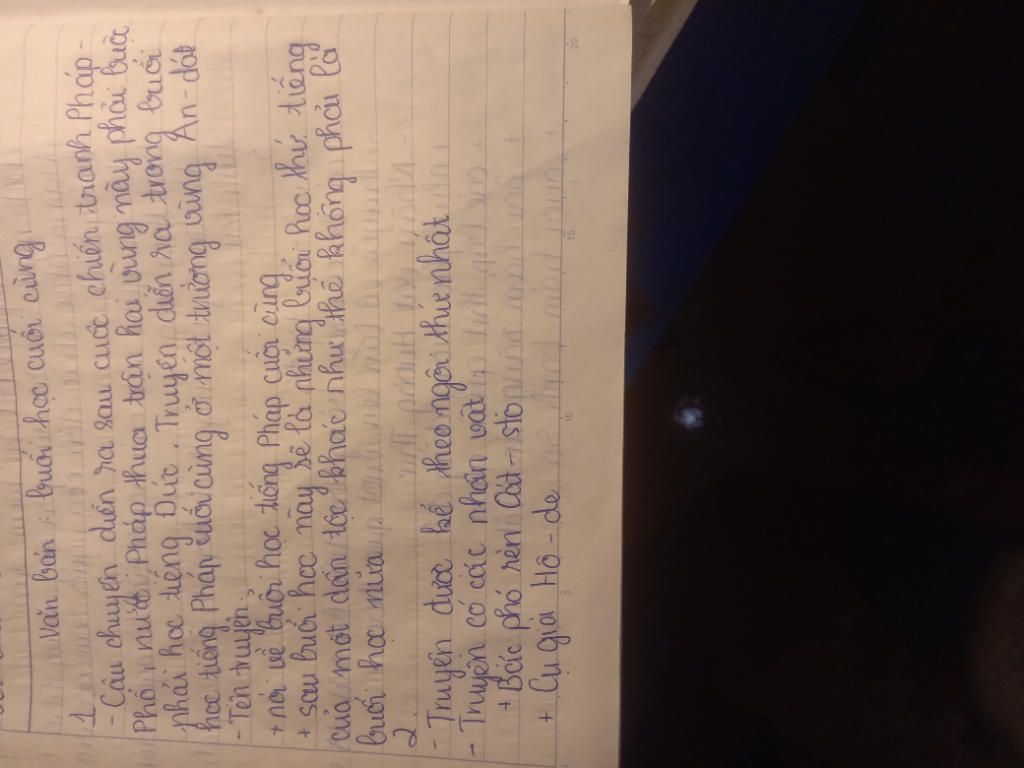 Văn bản : buổi học cuối cùng
1
- Câu chuyện diễn ra sau cuộc chiến tranh Pháp -
Phổ nước Pháp thua trận hai vùng này phải buộc
phải học tiếng Đức. Truyện diễn ra trong buổi
học tiếng Pháp cuối cùng ở một trường vùng An-dát
- Tên truyện,
+ nói về buổi học tiếng Pháp cuối cùng
+ sau buổi học này sẽ là những buổi học thứ tiếng
của một dân tộc khác như thế không phải là
buổi học nữa
2
- Truyện được kể theo ngôi thứ nhất
- Truyện có các nhân vật
+ Bác phó rèn Oát-stơ
+ Cụ già Hô-de